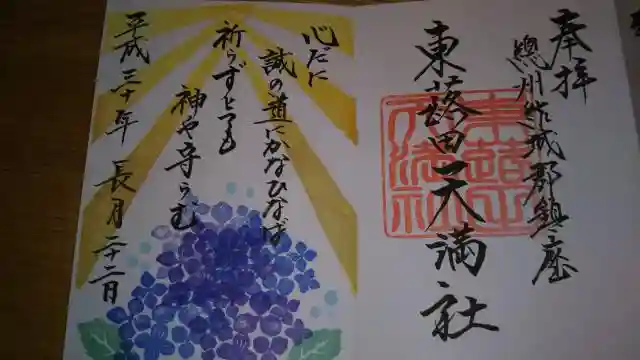 奉拝
總州結城郡鎮座
東蕗田天満社
心だに
誠の道にかなひなば
祈らずとても
神や守らむ
平成三十年 長月二十二日